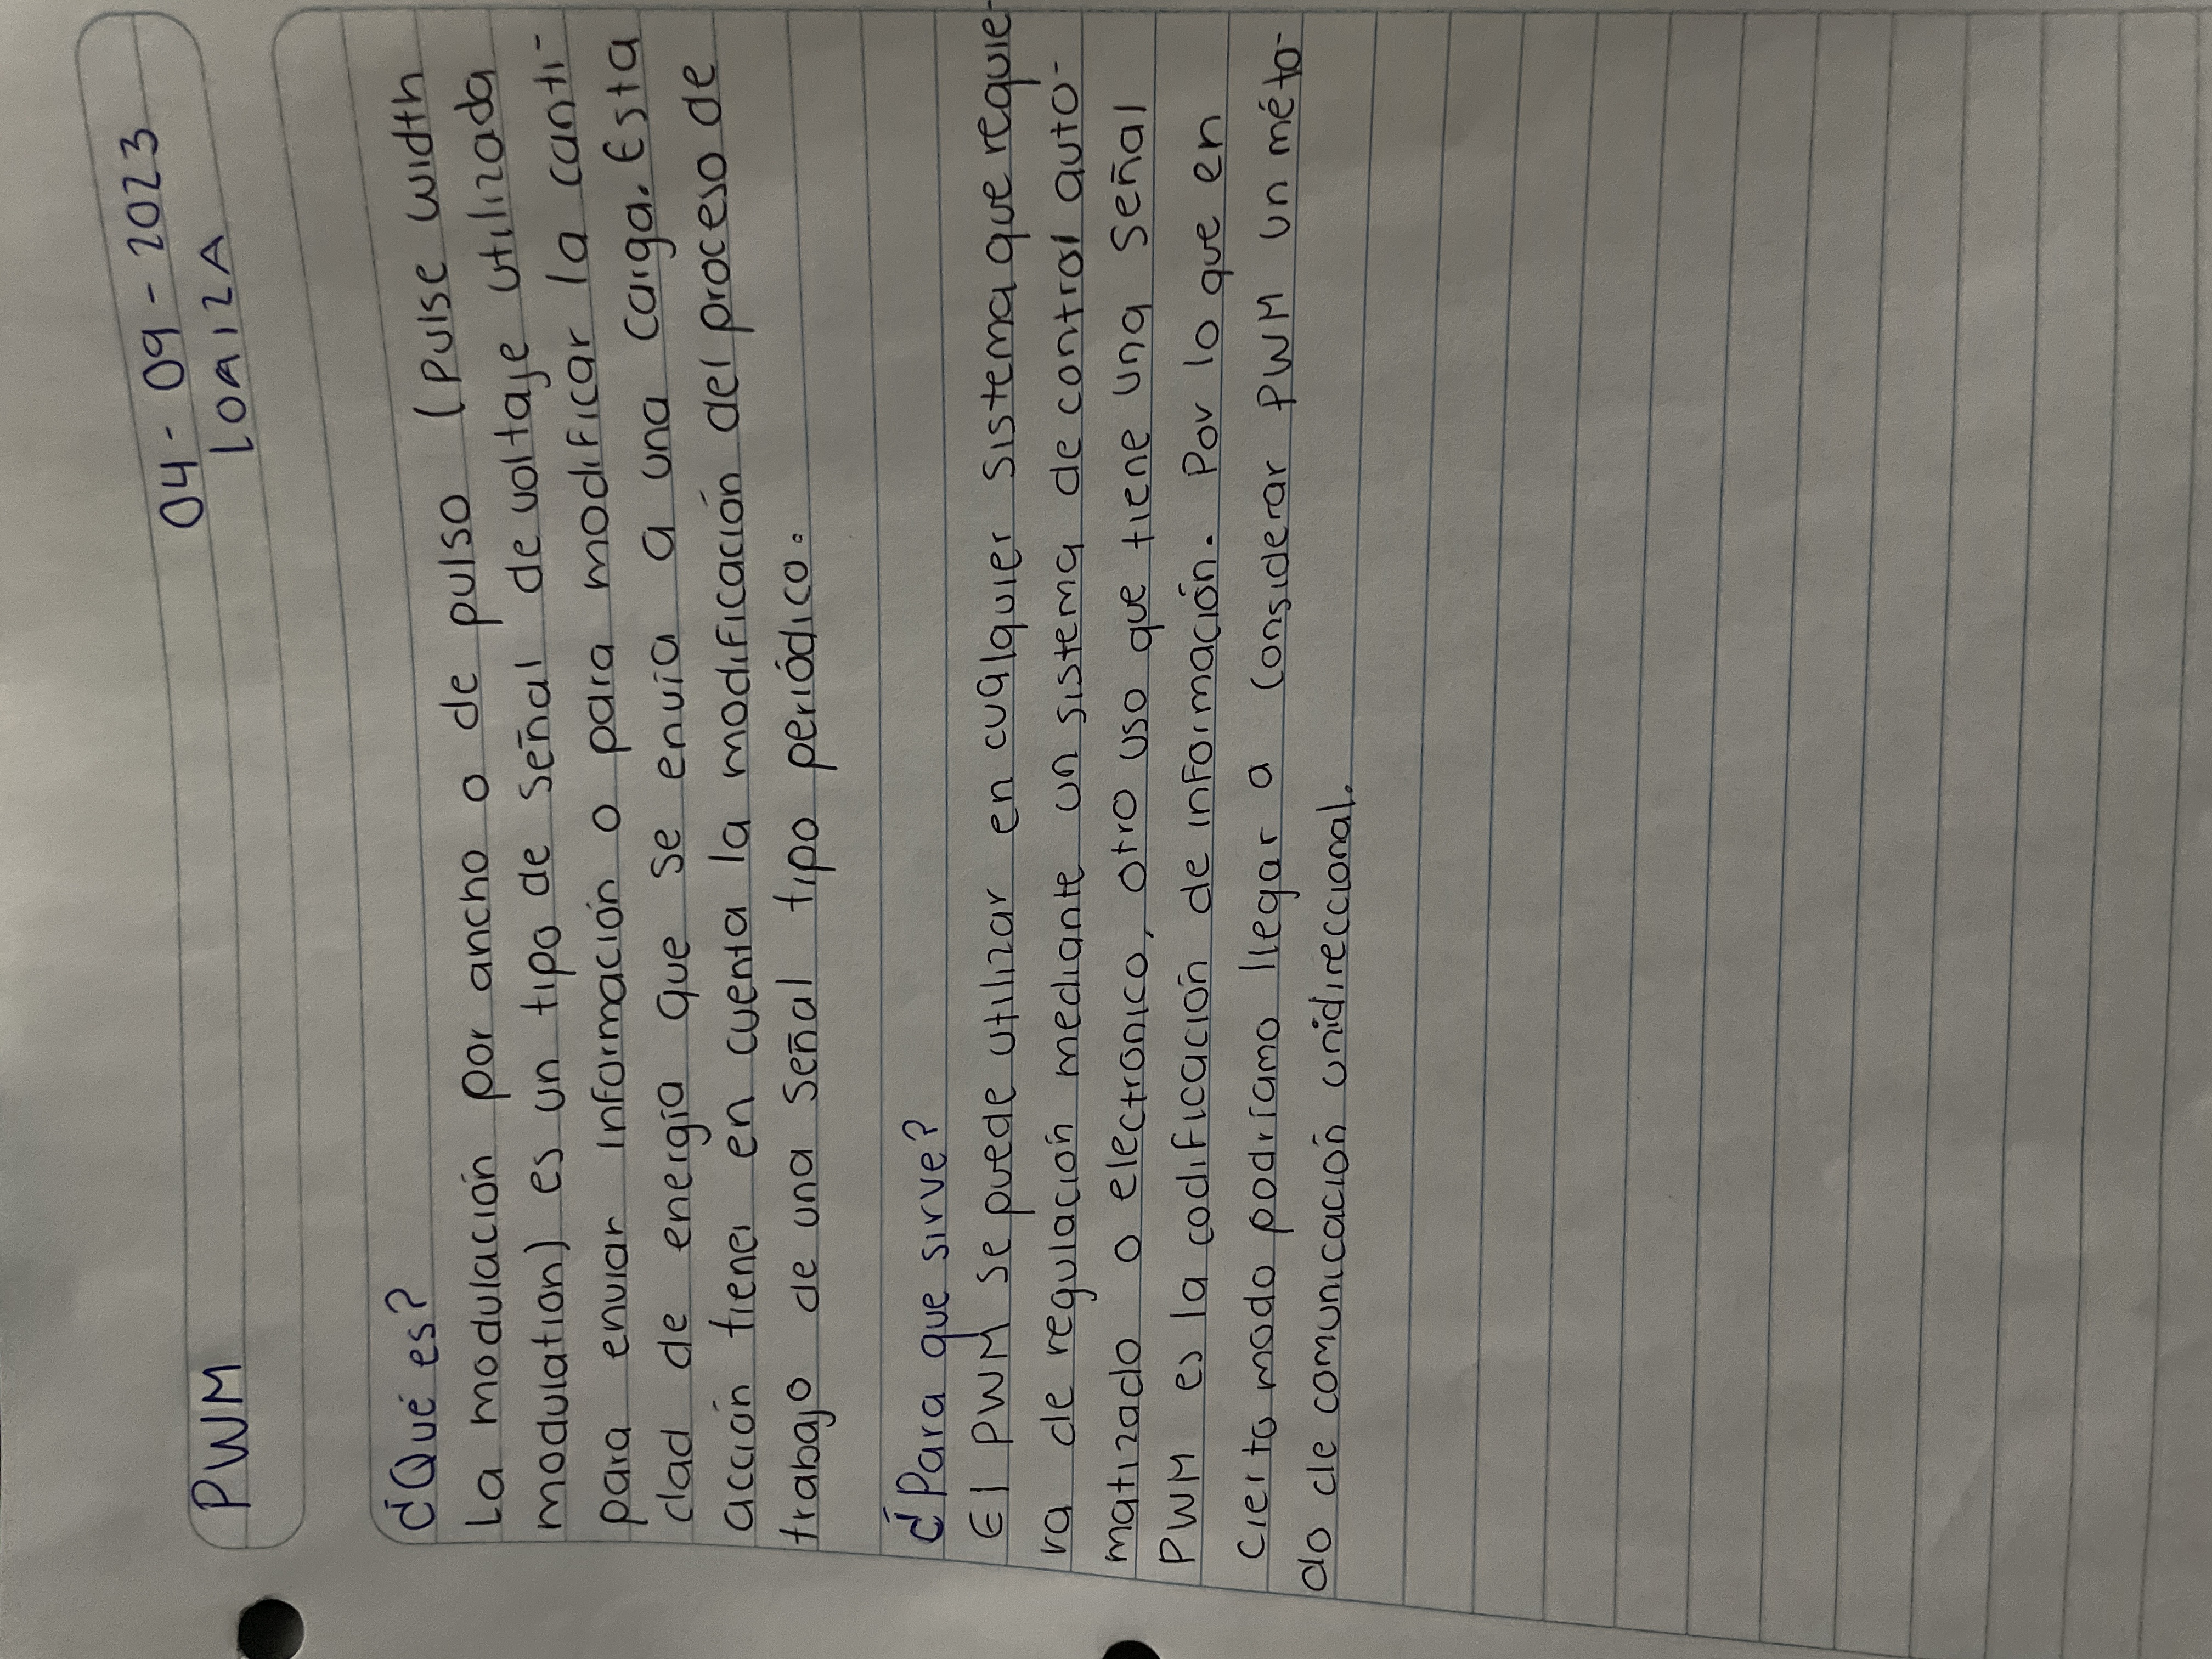 PWM
04-09-2023
LOAIZA
¿Qué es?
La modulación por ancho o de pulso (pulse width
modulation) es un tipo de señal de voltaje utilizada
para enviar información o para modificar la canti-
dad de energía que se envía a una carga. Esta
acción tiene en cuenta la modificación del proceso de
trabajo de una señal tipo periódico.
¿Para que sirve?
El PWM se puede utilizar en cualquier sistema que requie-
ra de regulación mediante un sistema de control auto-
matizado o electronico, otro uso que tiene una señal
PWM es la codificación de información. Por lo que en
cierto modo podríamo llegar a considerar PWM un méto-
do de comunicación unidireccional.